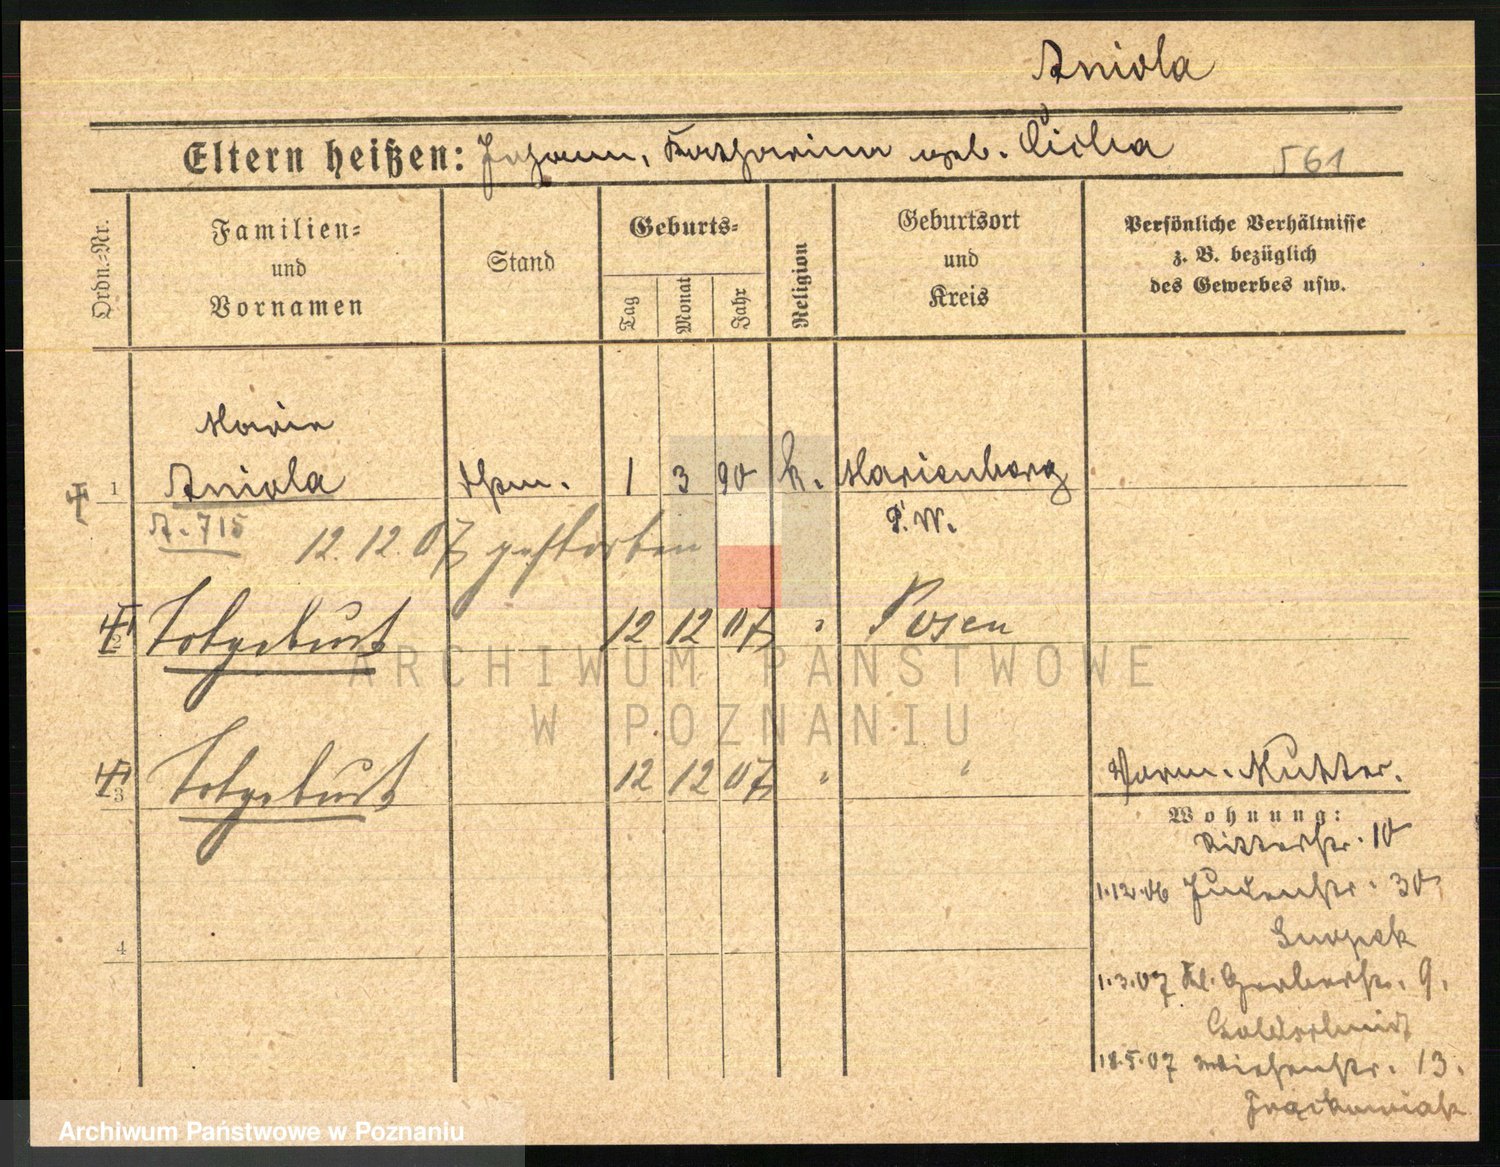 Aniola
Eltern heißen: Johann, Katharina geb. Cicha 561
Ordn.-Nr.
Familien-
und
Vornamen
Stand
Geburts-
Tag
Monat
Jahr
Religion
Geburtsort
und
Kreis
Persönliche Verhältnisse
z. B. bezüglich
des Gewerbes usw.
Marie
1 Aniola 1 3 90 k. Marienberg
A. 715 P. W.
12.12.07 gestorben
2 Totgeburt 12 12 07 " Posen
ARCHIWUM PAŃSTWOWE
W POZNANIU
3 Totgeburt 12 12 07 " " Vorm. Mutter.
Wohnung:
Ritterstr. 10
1.12.06 Judenstr. 30,
4
1.3.07 Kl. Gerberstr. 9.
Goldschmidt
18.5.07 Wiesenstr. 13.
Frąckowiak
Archiwum Państwowe w Poznaniu